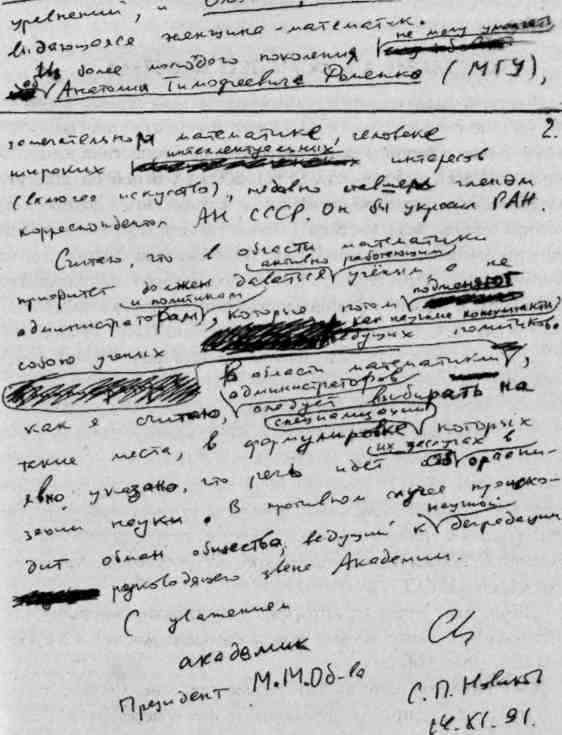 уравнений, и
выдающаяся женщина-математик.
Из более молодого поколения не могу умолчать
Анатолия Тимофеевича Фоменко (МГУ),
2.
замечательном математике человеке
широких интеллектуальных интересов
(включая искусство), недавно членом
корреспондентом АН СССР. Он бы украсил РАН.
Считаю что в области математики
приоритет должен даваться активно работающим учёным, а не
администраторам и политикам, которые потом подменяют
собою ученых как научные консультанты ведущих политиков.
В области математики,
как я считаю, администраторов следует выбирать на
такие места, в формулировке специализации которых
явно указано, что речь идет об их заслугах в органи-
зации науки. В противном случае происхо-
дит обман общества, ведущий к научной деградации
руководящего звена Академии.
С уважением
академик
Президент М.М.Об-ва
С. П. Новиков
14.XI.91.